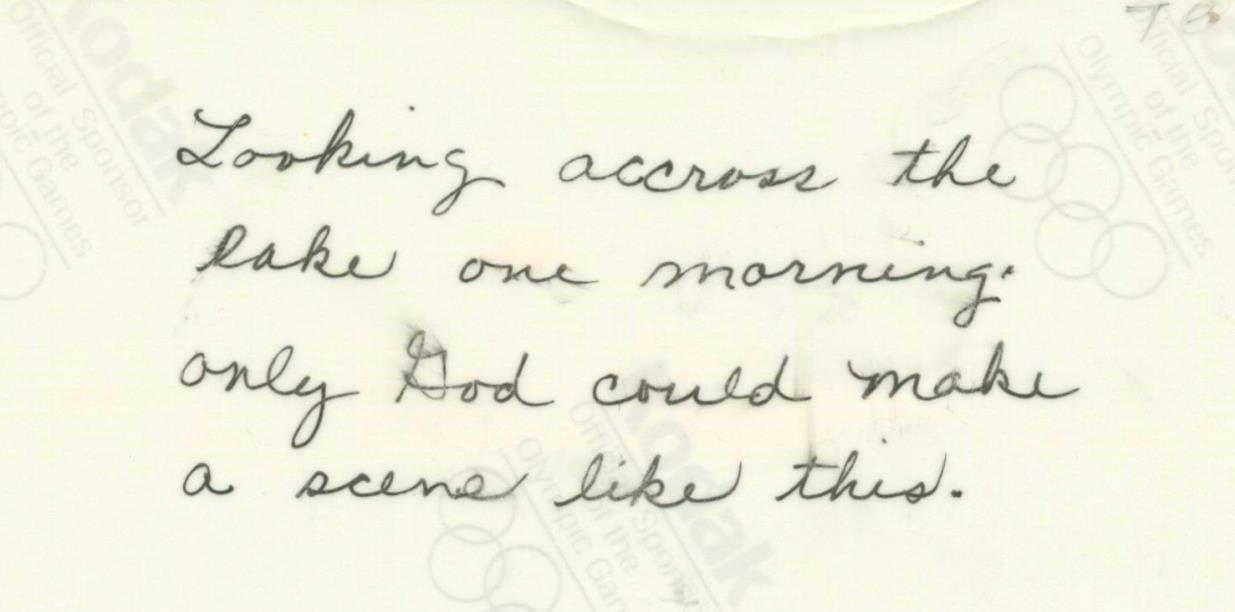 Kodak
Official Sponsor
of the
Olympic Games
Kodak
Official Sponsor
of the
Olympic Games
Looking accross the
lake one morning.
only God could make
a scene like this.
Kodak
Official Sponsor
of the
Olympic Games